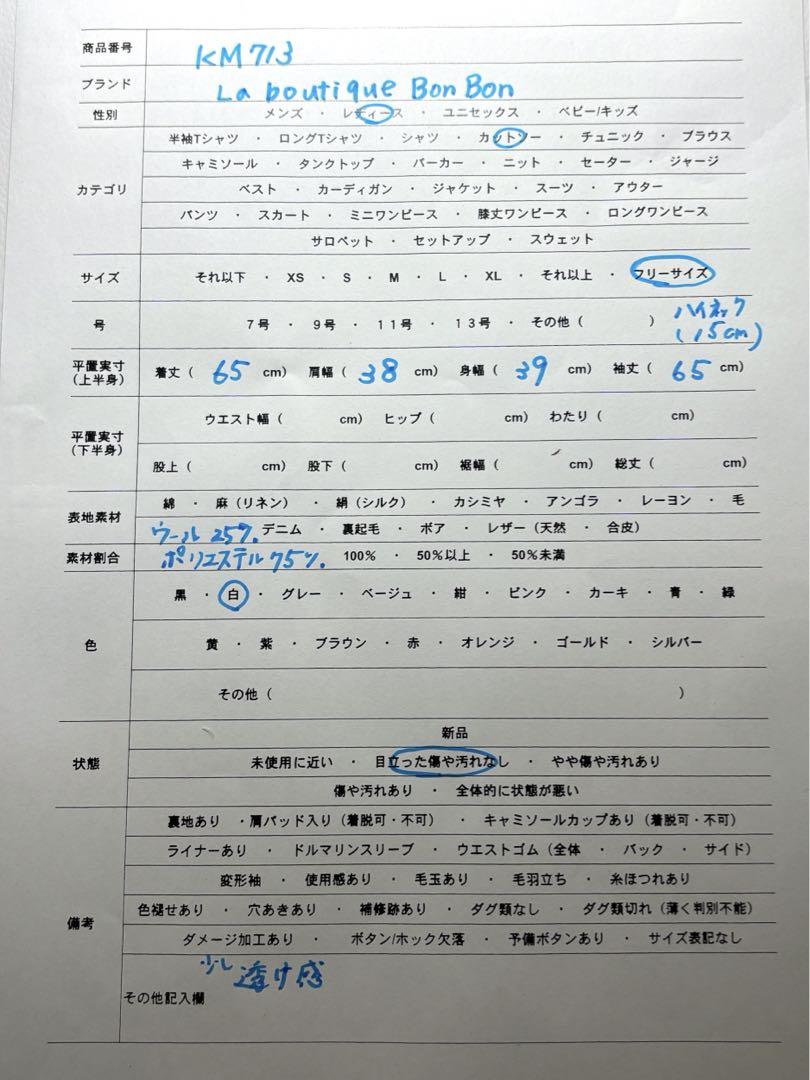 商品番号 KM713
ブランド La boutique BonBon
性別 メンズ ・ レディース ・ ユニセックス ・ ベビー/キッズ
半袖Tシャツ ・ ロングTシャツ ・ シャツ ・ カットソー ・ チュニック ・ ブラウス
キャミソール ・ タンクトップ ・ パーカー ・ ニット ・ セーター ・ ジャージ
カテゴリ ベスト ・ カーディガン ・ ジャケット ・ スーツ ・ アウター
パンツ ・ スカート ・ ミニワンピース ・ 膝丈ワンピース ・ ロングワンピース
サロペット ・ セットアップ ・ スウェット
サイズ それ以下 ・ XS ・ S ・ M ・ L ・ XL ・ それ以上 ・ フリーサイズ
号 7号 ・ 9号 ・ 11号 ・ 13号 ・ その他 ( ) ハイネック
(15cm)
平置実寸
(上半身) 着丈 ( 65 cm) 肩幅 ( 38 cm) 身幅 ( 39 cm) 袖丈 ( 65 cm)
ウエスト幅 ( cm) ヒップ ( cm) わたり ( cm)
平置実寸
(下半身)
股上 ( cm) 股下 ( cm) 裾幅 ( cm) 総丈 ( cm)
綿 ・ 麻 (リネン) ・ 絹 (シルク) ・ カシミヤ ・ アンゴラ ・ レーヨン ・ 毛
表地素材 ウール 25%. デニム ・ 裏起毛 ・ ボア ・ レザー (天然 ・ 合皮)
素材割合 ポリエステル 75%. 100% ・ 50%以上 ・ 50%未満
黒 ・ 白 ・ グレー ・ ベージュ ・ 紺 ・ ピンク ・ カーキ ・ 青 ・ 緑
色 黄 ・ 紫 ・ ブラウン ・ 赤 ・ オレンジ ・ ゴールド ・ シルバー
その他 ( )
新品
状態 未使用に近い ・ 目立った傷や汚れなし ・ やや傷や汚れあり
傷や汚れあり ・ 全体的に状態が悪い
裏地あり ・肩パッド入り (着脱可・不可) ・ キャミソールカップあり (着脱可・不可)
ライナーあり ・ ドルマリンスリーブ ・ ウエストゴム (全体 ・ バック ・ サイド)
変形袖 ・ 使用感あり ・ 毛玉あり ・ 毛羽立ち ・ 糸ほつれあり
備考 色褪せあり ・ 穴あきあり ・ 補修跡あり ・ ダグ類なし ・ ダグ類切れ (薄く判別不能)
ダメージ加工あり ・ ボタン/ホック欠落 ・ 予備ボタンあり ・ サイズ表記なし
少し透け感
その他記入欄